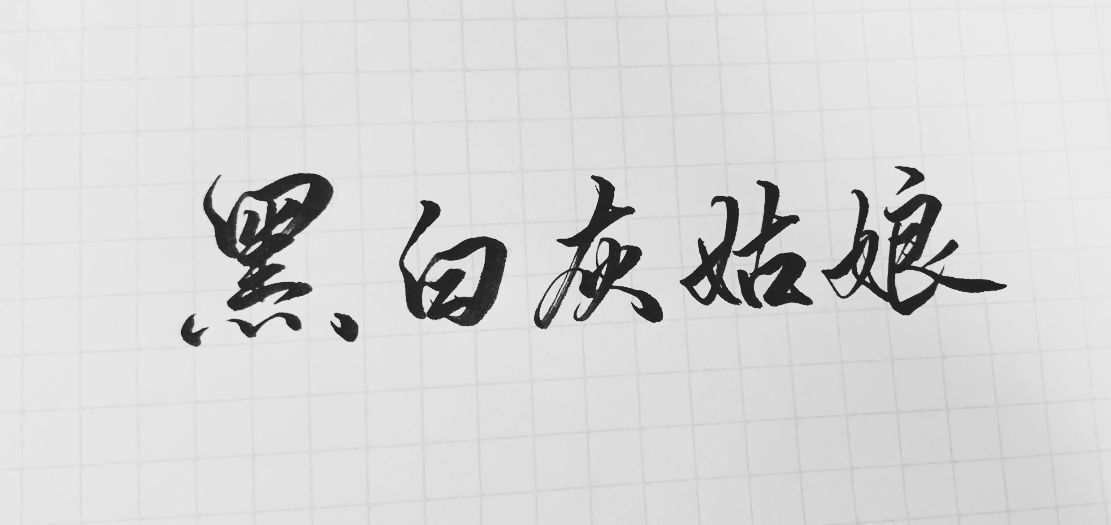 黑白灰姑娘